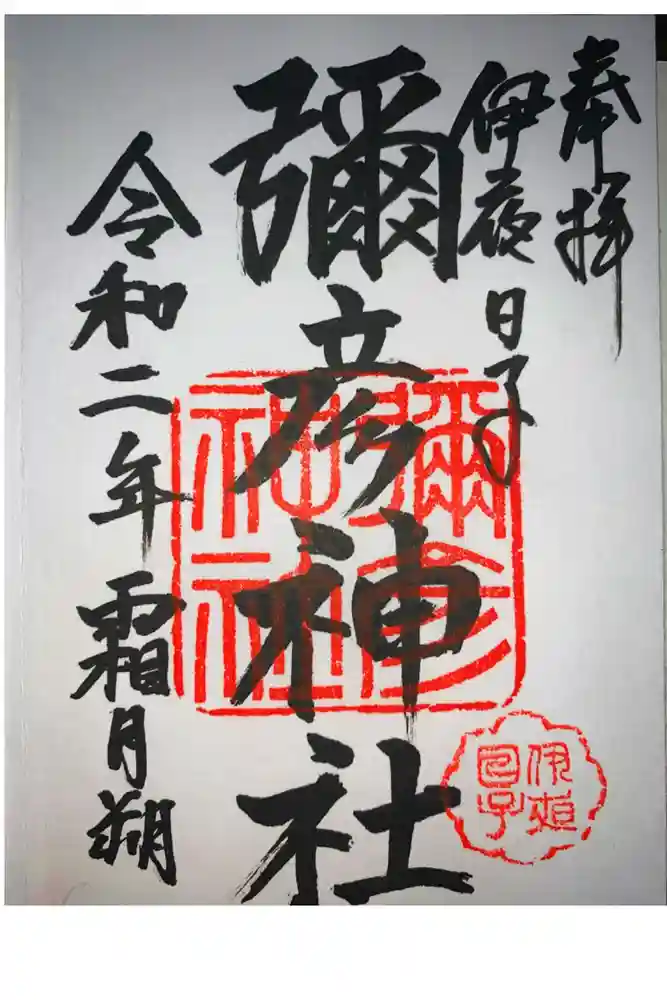 奉拝
伊夜日子
彌彦神社
令和二年霜月朔
彌彦
神社
伊夜
日子